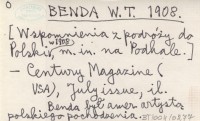 BENDA W.T. 1908.
[Wspomnienia z podróży do
Polski w 1908, m.in. na Podhale.]
— Century Magazine (
USA), July issue, il.
Benda był amer. artystą
polskiego pochodzenia.